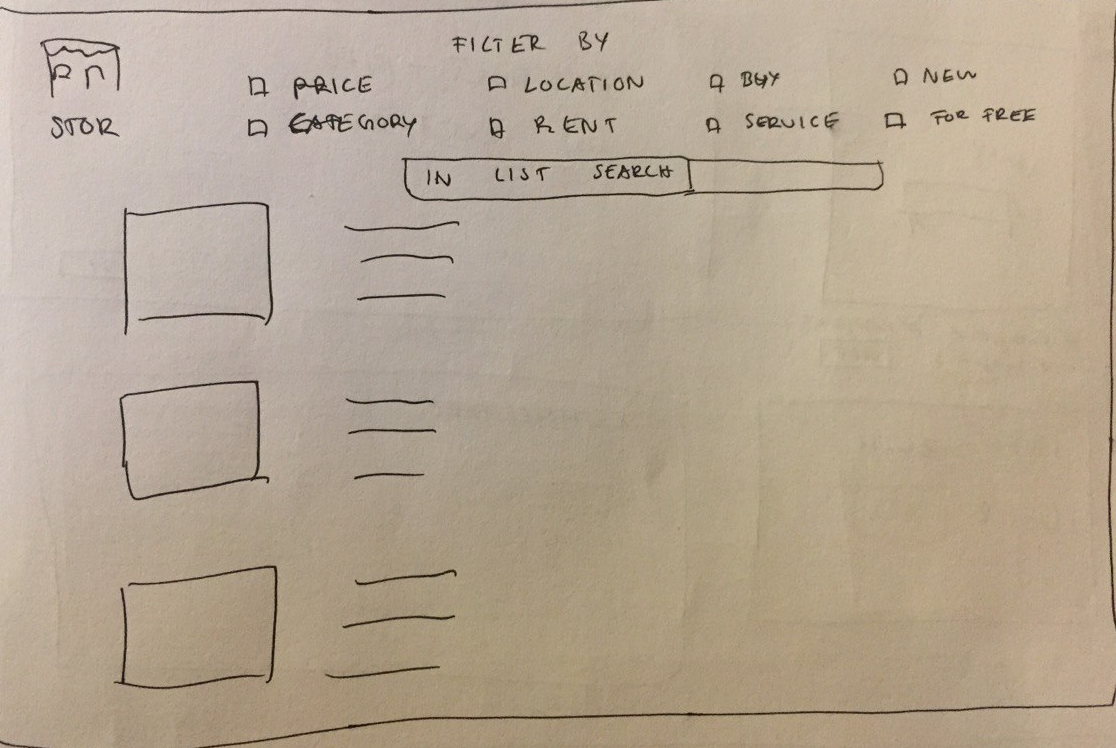 FILTER BY
PRICE LOCATION BUY NEW
STOR CATEGORY RENT SERVICE FOR FREE
IN LIST SEARCH